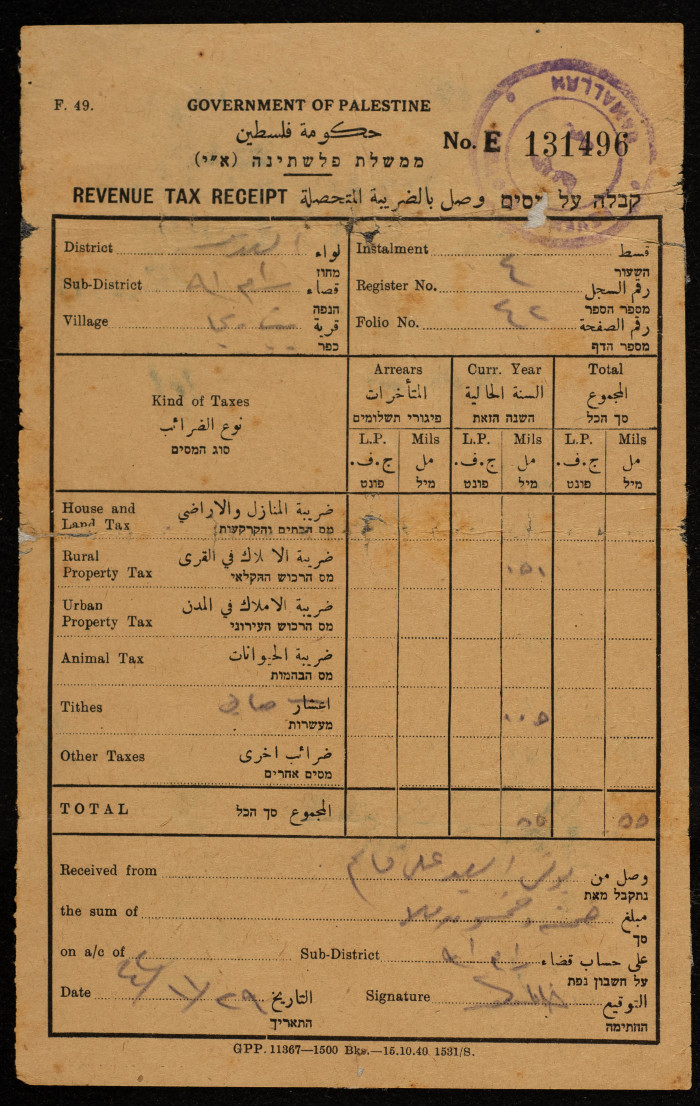 F. 49.
GOVERNMENT OF PALESTINE
حكومة فلسطين
ממשלת פלשתינה (א״י)
No. E 131496
RAMALLAH
REVENUE TAX RECEIPT وصل بالضريبة المتحصلة קבלה על מסים
District القدس لواء
מחוז
Sub-District رام الله قضاء
הנפה
Village قرية
כפר
Instalment قسط
השעור
Register No. ٤ رقم السجل
מספר הספר
Folio No. ٤٢ رقم الصفحة
מספר הדף
Kind of Taxes
نوع الضرائب
סוג המסים
Arrears
المتأخرات
פיגורי תשלומים
Curr. Year
السنة الحالية
השנה הזאת
Total
المجموع
סך הכל
L.P. Mils L.P. Mils L.P. Mils
ج.ف. مل ج.ف. مل ج.ف. مل
פונט מיל פונט מיל פונט מיל
House and ضريبة المنازل والاراضي
Land Tax מס הבתים והקרקעות
Rural ضريبة الاملاك في القرى
Property Tax מס הרכוש החקלאי
Urban ضريبة الاملاك في المدن
Property Tax מס הרכוש העירוני
Animal Tax ضريبة الحيوانات
מס הבהמות
Tithes اعشار
מעשרות
Other Taxes ضرائب اخرى
מסים אחרים
TOTAL المجموع סך הכל ٥٥ ٥٥
Received from وصل من
נתקבל מאת
the sum of مبلغ
סך
on a/c of Sub-District رام الله على حساب قضاء
על חשבון נפת
Date التاريخ
התאריך
Signature التوقيع
החתימה
GPP. 11367—1500 Bks.—15.10.40 1531/S.